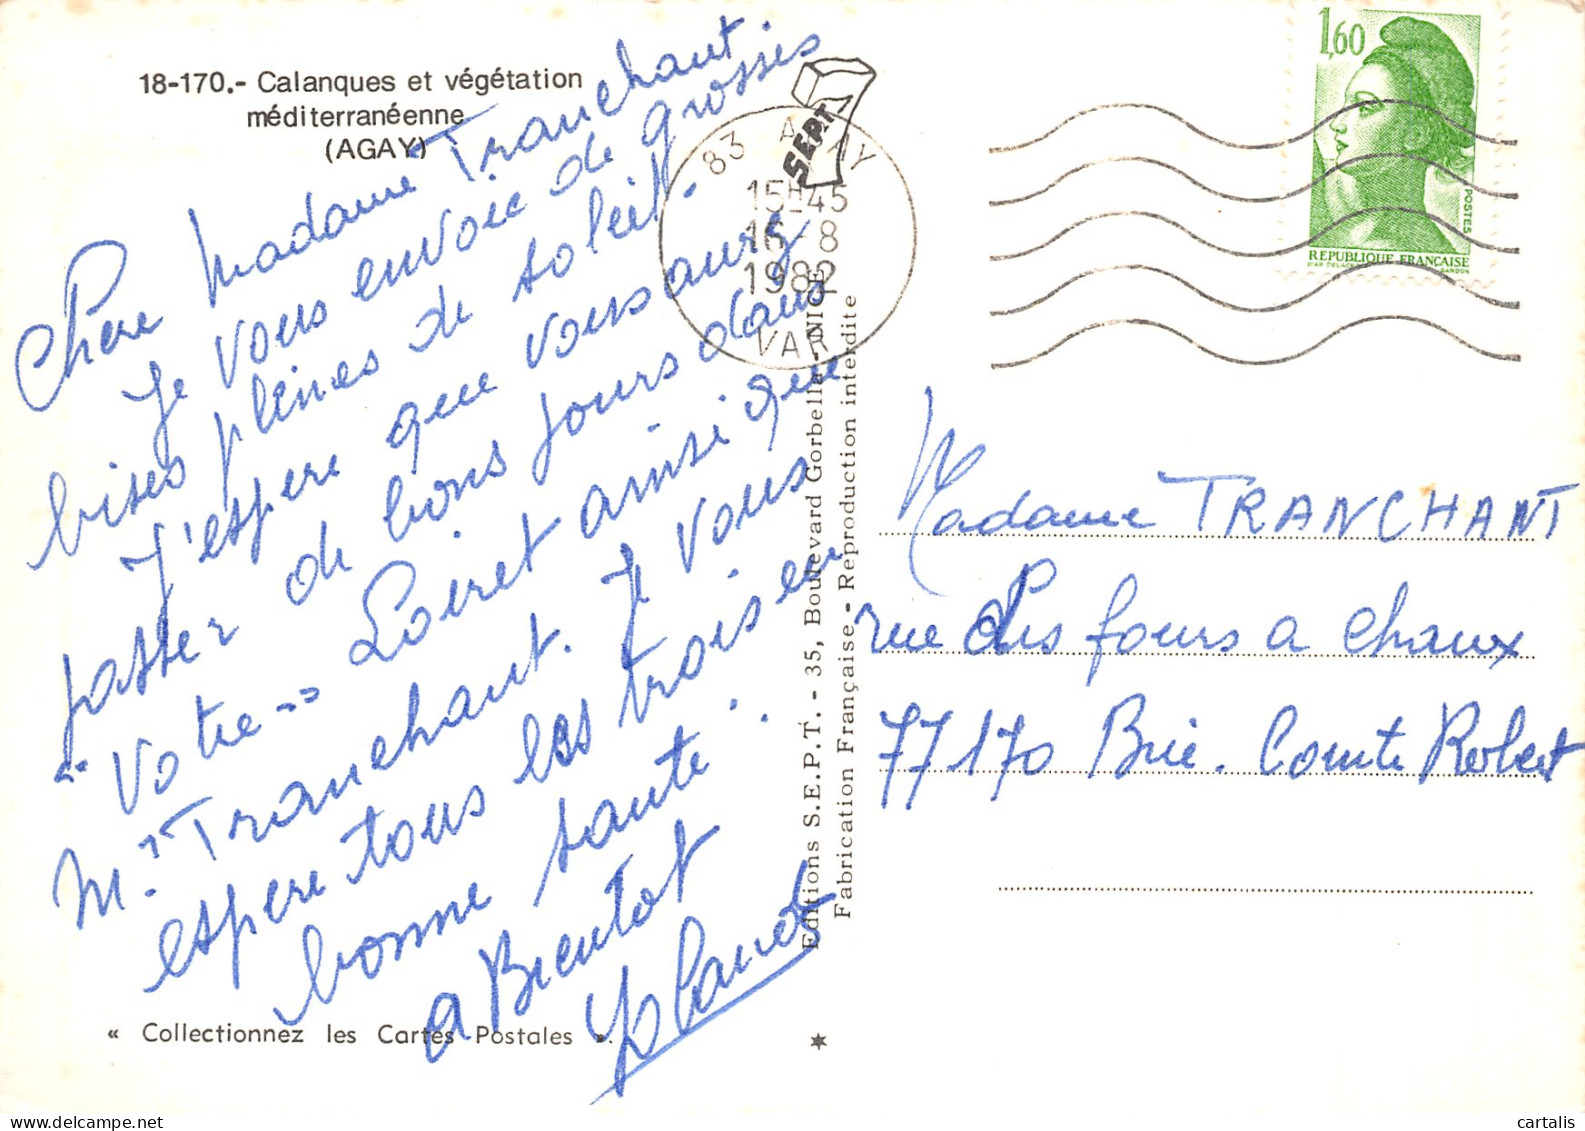 18-170.- Calanques et végétation
méditerranéenne
(AGAY)
Chère Madame Tranchant
Je vous envoie de grosses
bises pleines de soleil.
J'espere que vous aurez
passer de bons jours dans
"Votre" Loiret ainsi que
Mr Tranchant. Je vous
espere tous les trois en
bonne sante..
a Bientot
Yolande
« Collectionnez les Cartes Postales ».
Editions S.E.P.T. - 35, Boulevard Gorbella - NICE
Fabrication Française - Reproduction interdite
SEPT
83 AGAY
15H45
16-8
1982
VAR
1,60
POSTES
REPUBLIQUE FRANÇAISE
D'AP. DELACROIX
GANDON
Madame TRANCHANT
rue des fours a chaux
77170 Brie. Comte Robert
cartalis